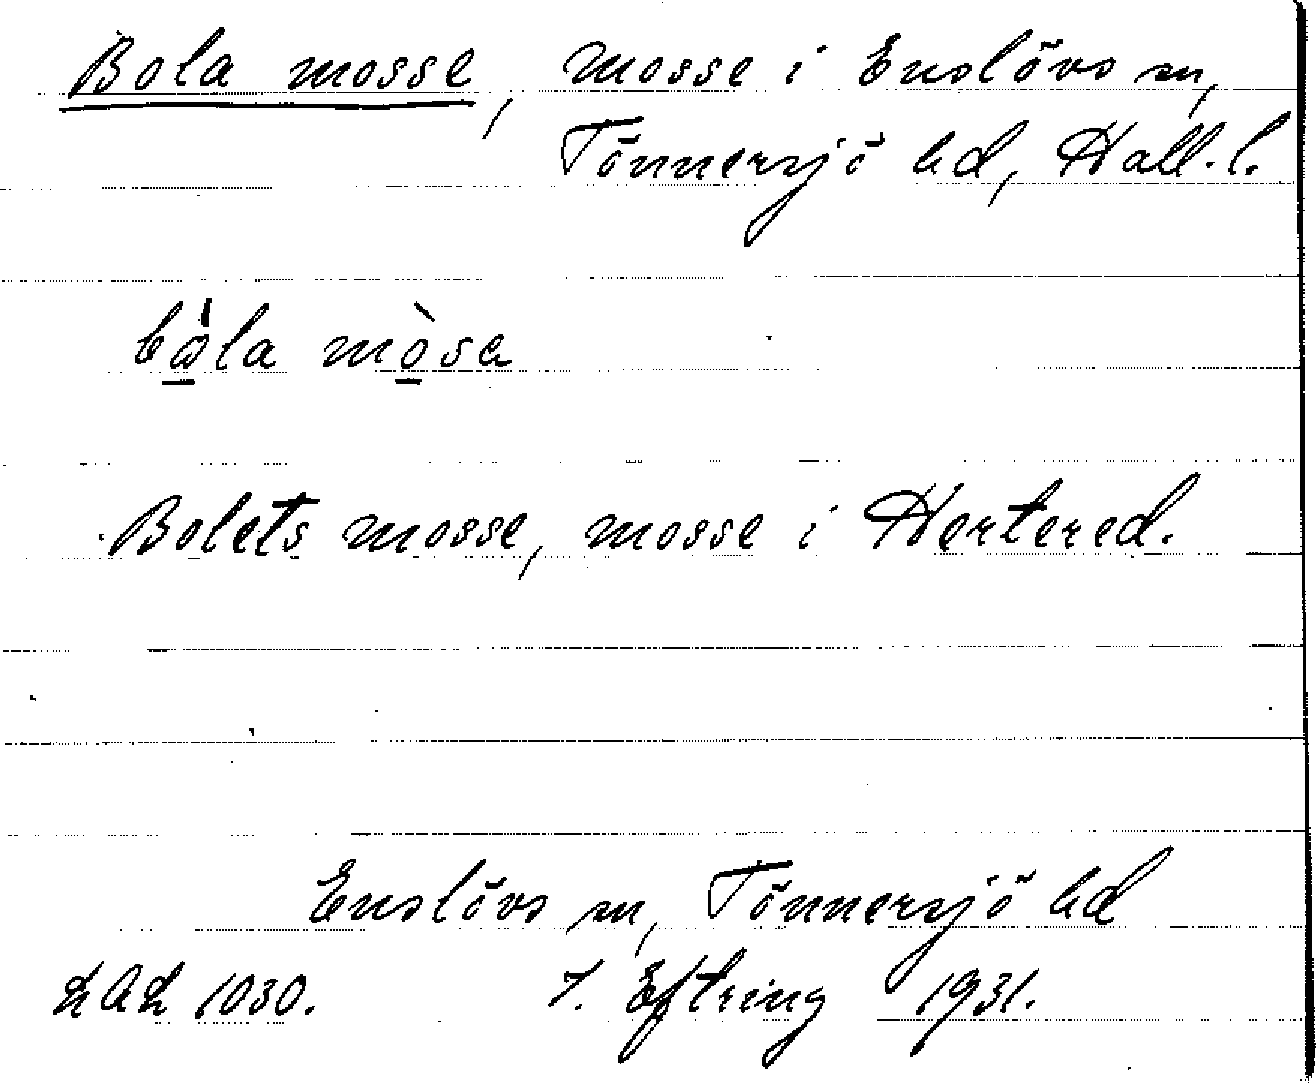 Bola mosse, mosse i Enslövs sn,
Tönnersjö hd, Hall. l.
Bolets mosse, mosse i Hertered.
Enslövs sn, Tönnersjö hd
LAL 1030. J. Eftring 1931.